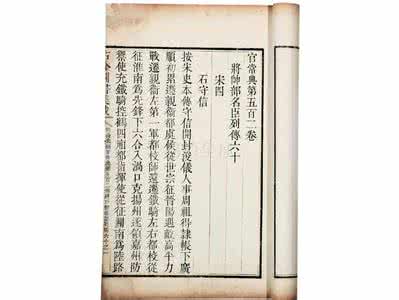 官常典第五百二卷
將帥部名臣列傳六十
宋四
石守信
按宋史本傳守信開封浚儀人事周祖得隸帳下廣
順初累遷親衞都虞候從世宗征晉陽遇敵高平力
戰遷親衞左第一軍都校師還遷鐵騎左右都校從
征淮南爲先鋒下六合入渦口克揚州遂領嘉州防
禦使充鐵騎控鶴四廂都指揮使從征關南爲陸路
古今圖書集成